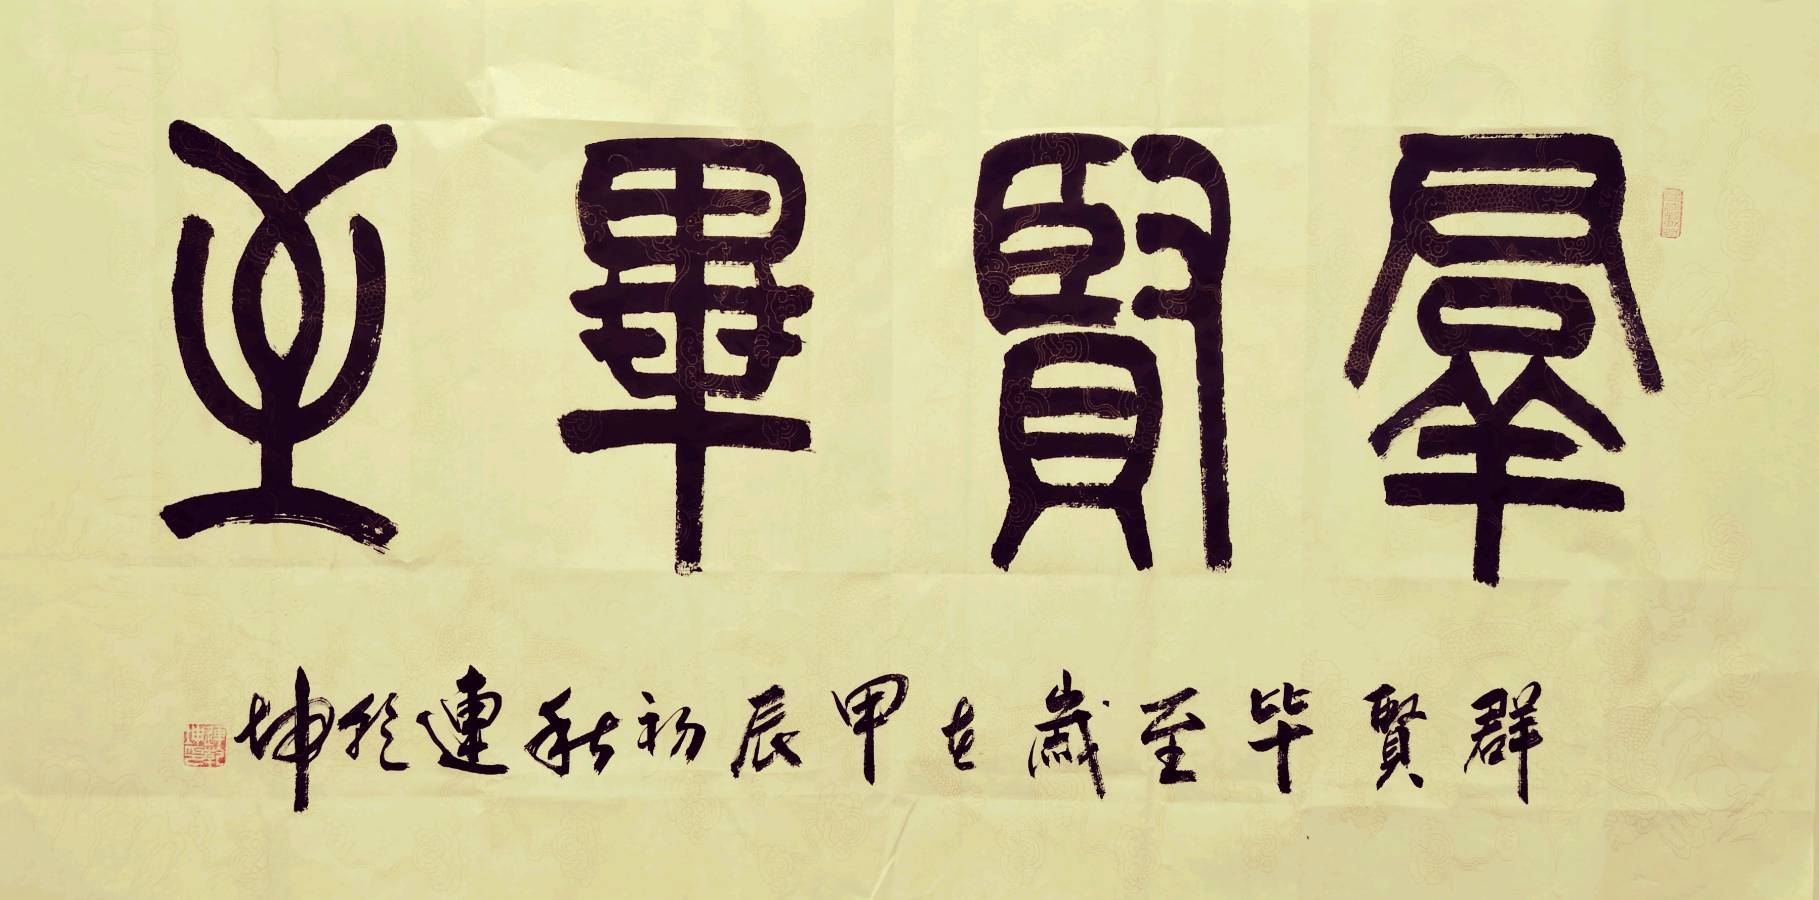 羣賢畢至
群賢毕至歲在甲辰初秋連乾坤